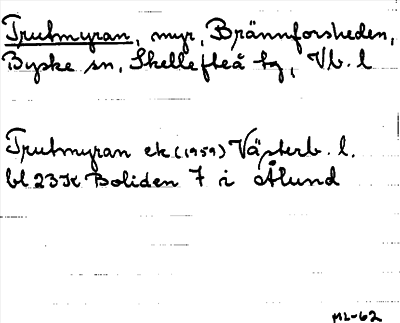 Trutmyran, myr, Brännforsheden,
Byske sn, Skellefteå tg, Vb. l
Trutmyran ek (1959) Västerb. l.
bl 23K Boliden 7 i Ålund
ML-62